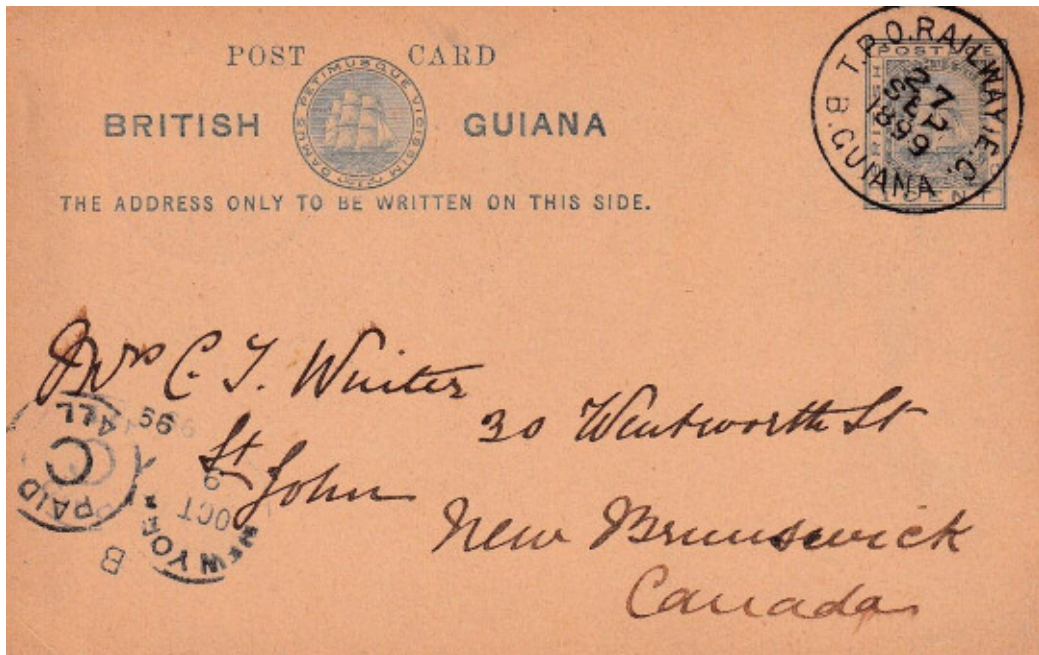 POST CARD
BRITISH GUIANA
DAMUS PETIMUSQUE VICISSIM
THE ADDRESS ONLY TO BE WRITTEN ON THIS SIDE.
T.P.O. RAILWAY. E.C.
27
SEP
1899
B. GUIANA
POSTAGE
1 CENT
Mrs C. T. Winter
30 Wentworth St
St John
New Brunswick
Canada
PAID
ALL
C
NEW YORK
OCT
99
B